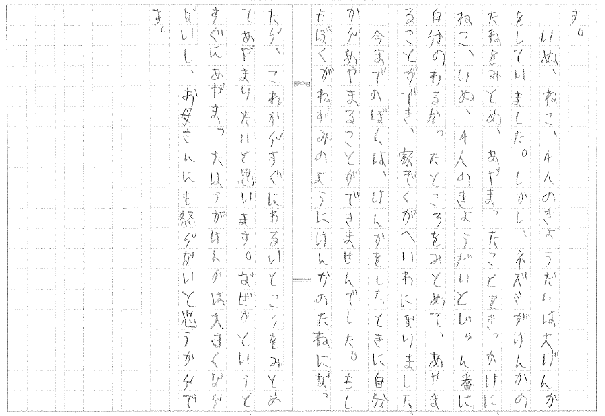 す。
いぬ、ねこ、4人のきょうだいは大げんか
をしていました。しかし、ネズミがけんかの
たねをみとめ、あやまったことをきっかけに
ねこ、いぬ、4人のきょうだいとじゅん番に
自分のわるかったところをみとめて、あやま
ることができ、家ぞくがへいわになりました。
今までのぼくは、けんかをしたときに自分
からあやまることができませんでした。もし
たぼくがねずみのようにけんかのたねになっ
たら、これからすぐにわるいところをみとめ
てあやまりたいと思います。なぜかというと
すぐにあやまったほうがけんかは大きくなら
ないし、お母さんにも怒られないと思うからで
す。